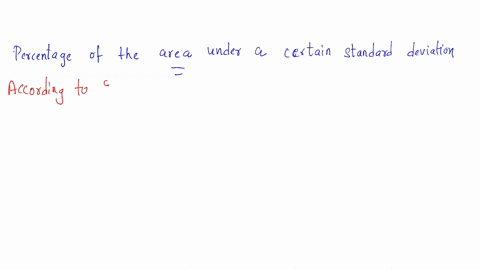 Percentage of the area under a certain standard deviation
According to